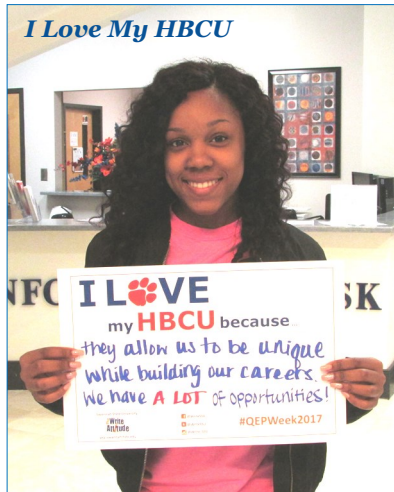 I Love My HBCU
INFO SK
I LOVE
my HBCU because...
they allow us to be unique
while building our careers.
We have A LOT of opportunities!
Write
Attitude
#QEPWeek2017